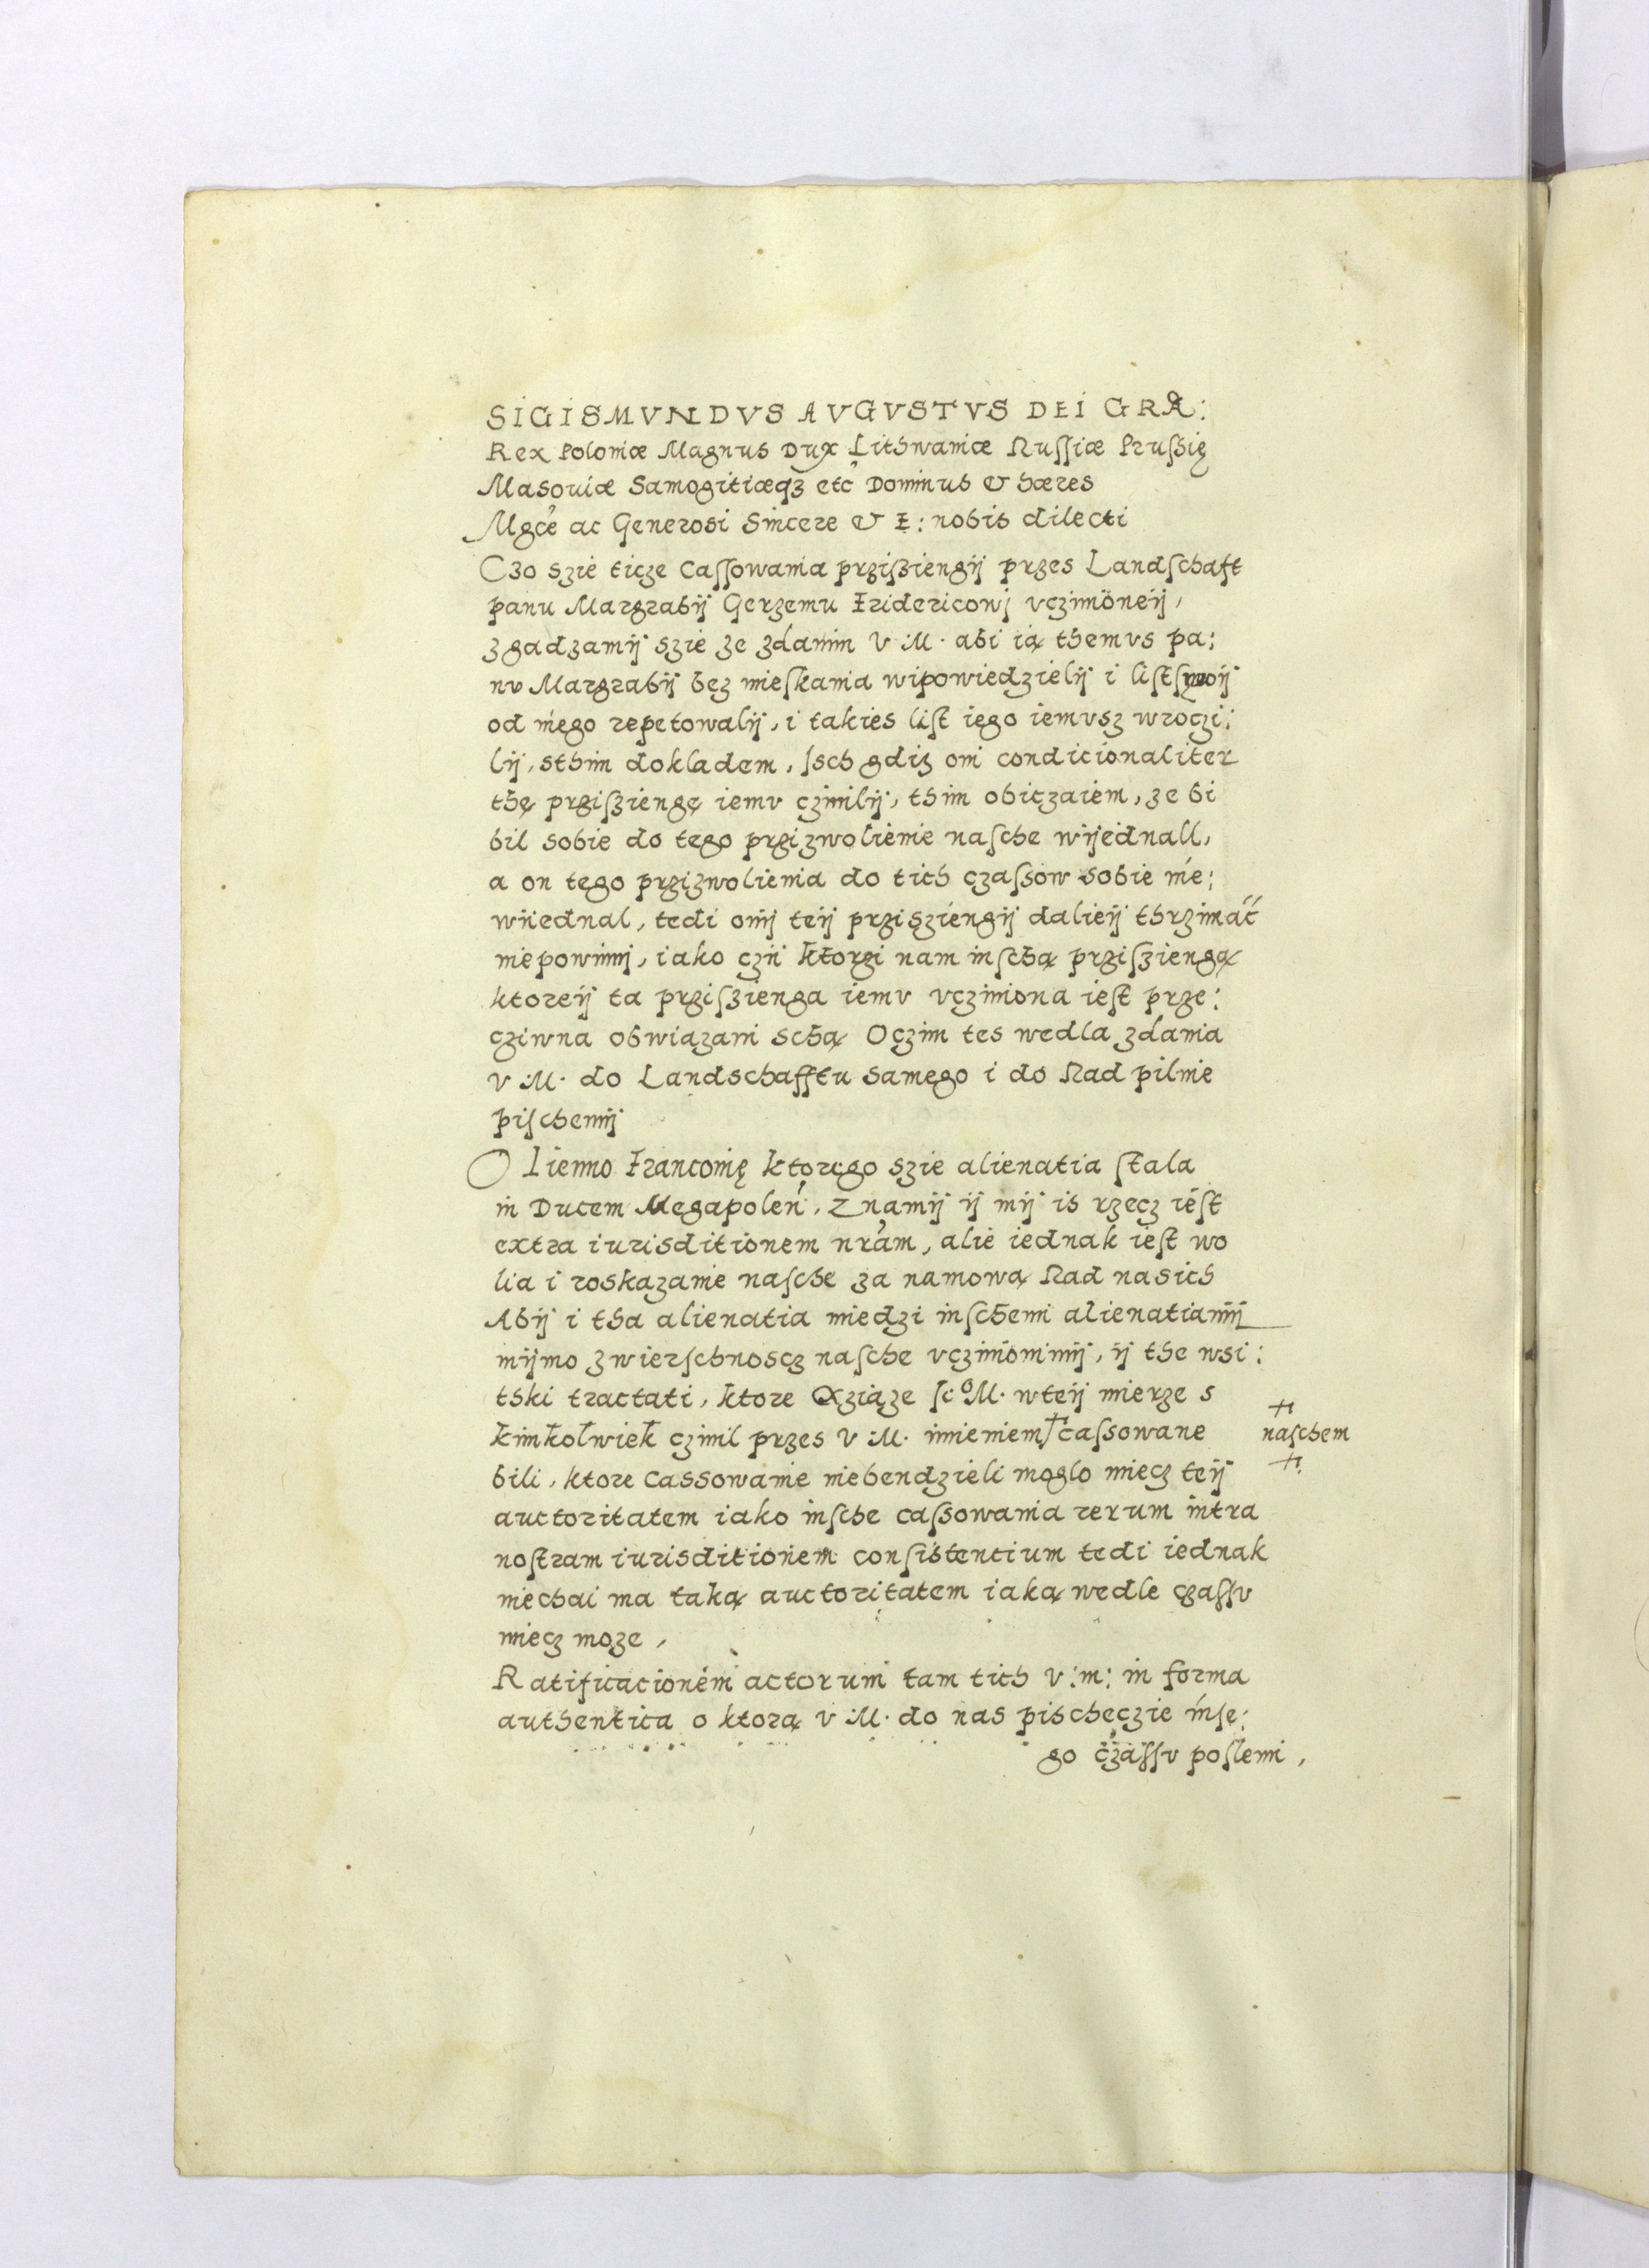 SIGISMVNDVS AVGVSTVS DEI GRA:
Rex Poloniæ Magnus Dux Lithwaniæ Russiæ Prussię
Masoviæ Samogitiæqȝ etc Dominus & hæres
Mgce ac Generosi Sincere & F: nobis dilecti
Czo szie ticze Cassowania przisziengij przes Landschaft
panu Margrabij Gerzemu Fridericowj vczinioneij,
zgadzamij szie ze zdanim V M. abi ią themvs pa:
nv Margrabij bez mieskania wipowiedzielij i list swoij
od niego repetowalij, i takies list iego iemvsz wroczi:
lij, sthim dokladem, Isch gdiz oni condicionaliter
thę prziszięngę iemv czinilij, thim obiczaiem, ze bi
bil sobie do tego przizwolienie nasche wijednall,
a on tego przizwolienia do tich czassow sobie nie:
wiiednal, tedi onij teij prziszięngij dalieij thrzimać
niepowinnj, iako czii ktorzi nam inschą prziszięngą
ktoreij ta prziszienga iemv vcziniona iest prze:
cziwna obwiązani schą Oczim tes wedla zdania
v M. do Landschafftu samego i do Rad pilnie
pischemij
O Lienno Franconię ktorego szie alienatia stala
in Ducem Megapolen, Znamij ij mij is rzecz iest
extra iurisditionem nram, alie iednak iest wo
lia i roskazanie nasche za namową Rad nasich
Abij i tha alienatia miedzi inschemi alienatiamij
mijmo zwierschnoscz nasche vczinionimij, ij the wsi:
tski tractati, ktore Xziąze Jc⁰M. wteij mierze s
kimkolwiek czinil przes V M. imieniem † cassowane
naschem
bili, ktore Cassowanie niebendzieli moglo miecz teij
auctoritatem iako insche cassowania rerum intra
nostram iurisditionem consistentium tedi iednak
niechai ma taką auctoritatem iaką wedle czassv
miecz moze,
Ratificacionem actorum tam tich v:m: in forma
authentica o ktorą v M. do nas pischeczie inse:
go czassv poslemi,